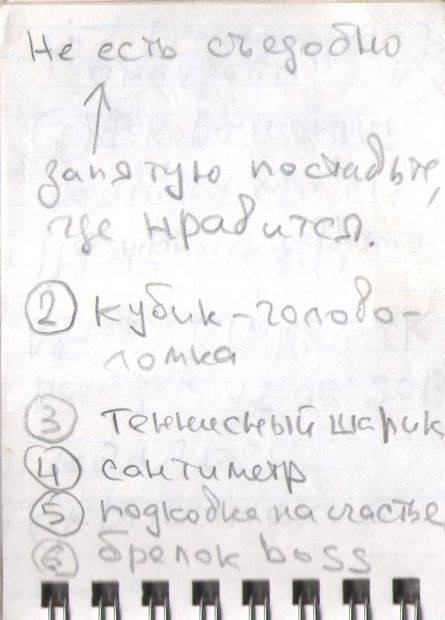 Не есть съедобно
запятую поставьте,
где нравится.
2 кубик-голово-
ломка
3 теннисный шарик
4 сантиметр
5 подковка на счастье
6 брелок boss